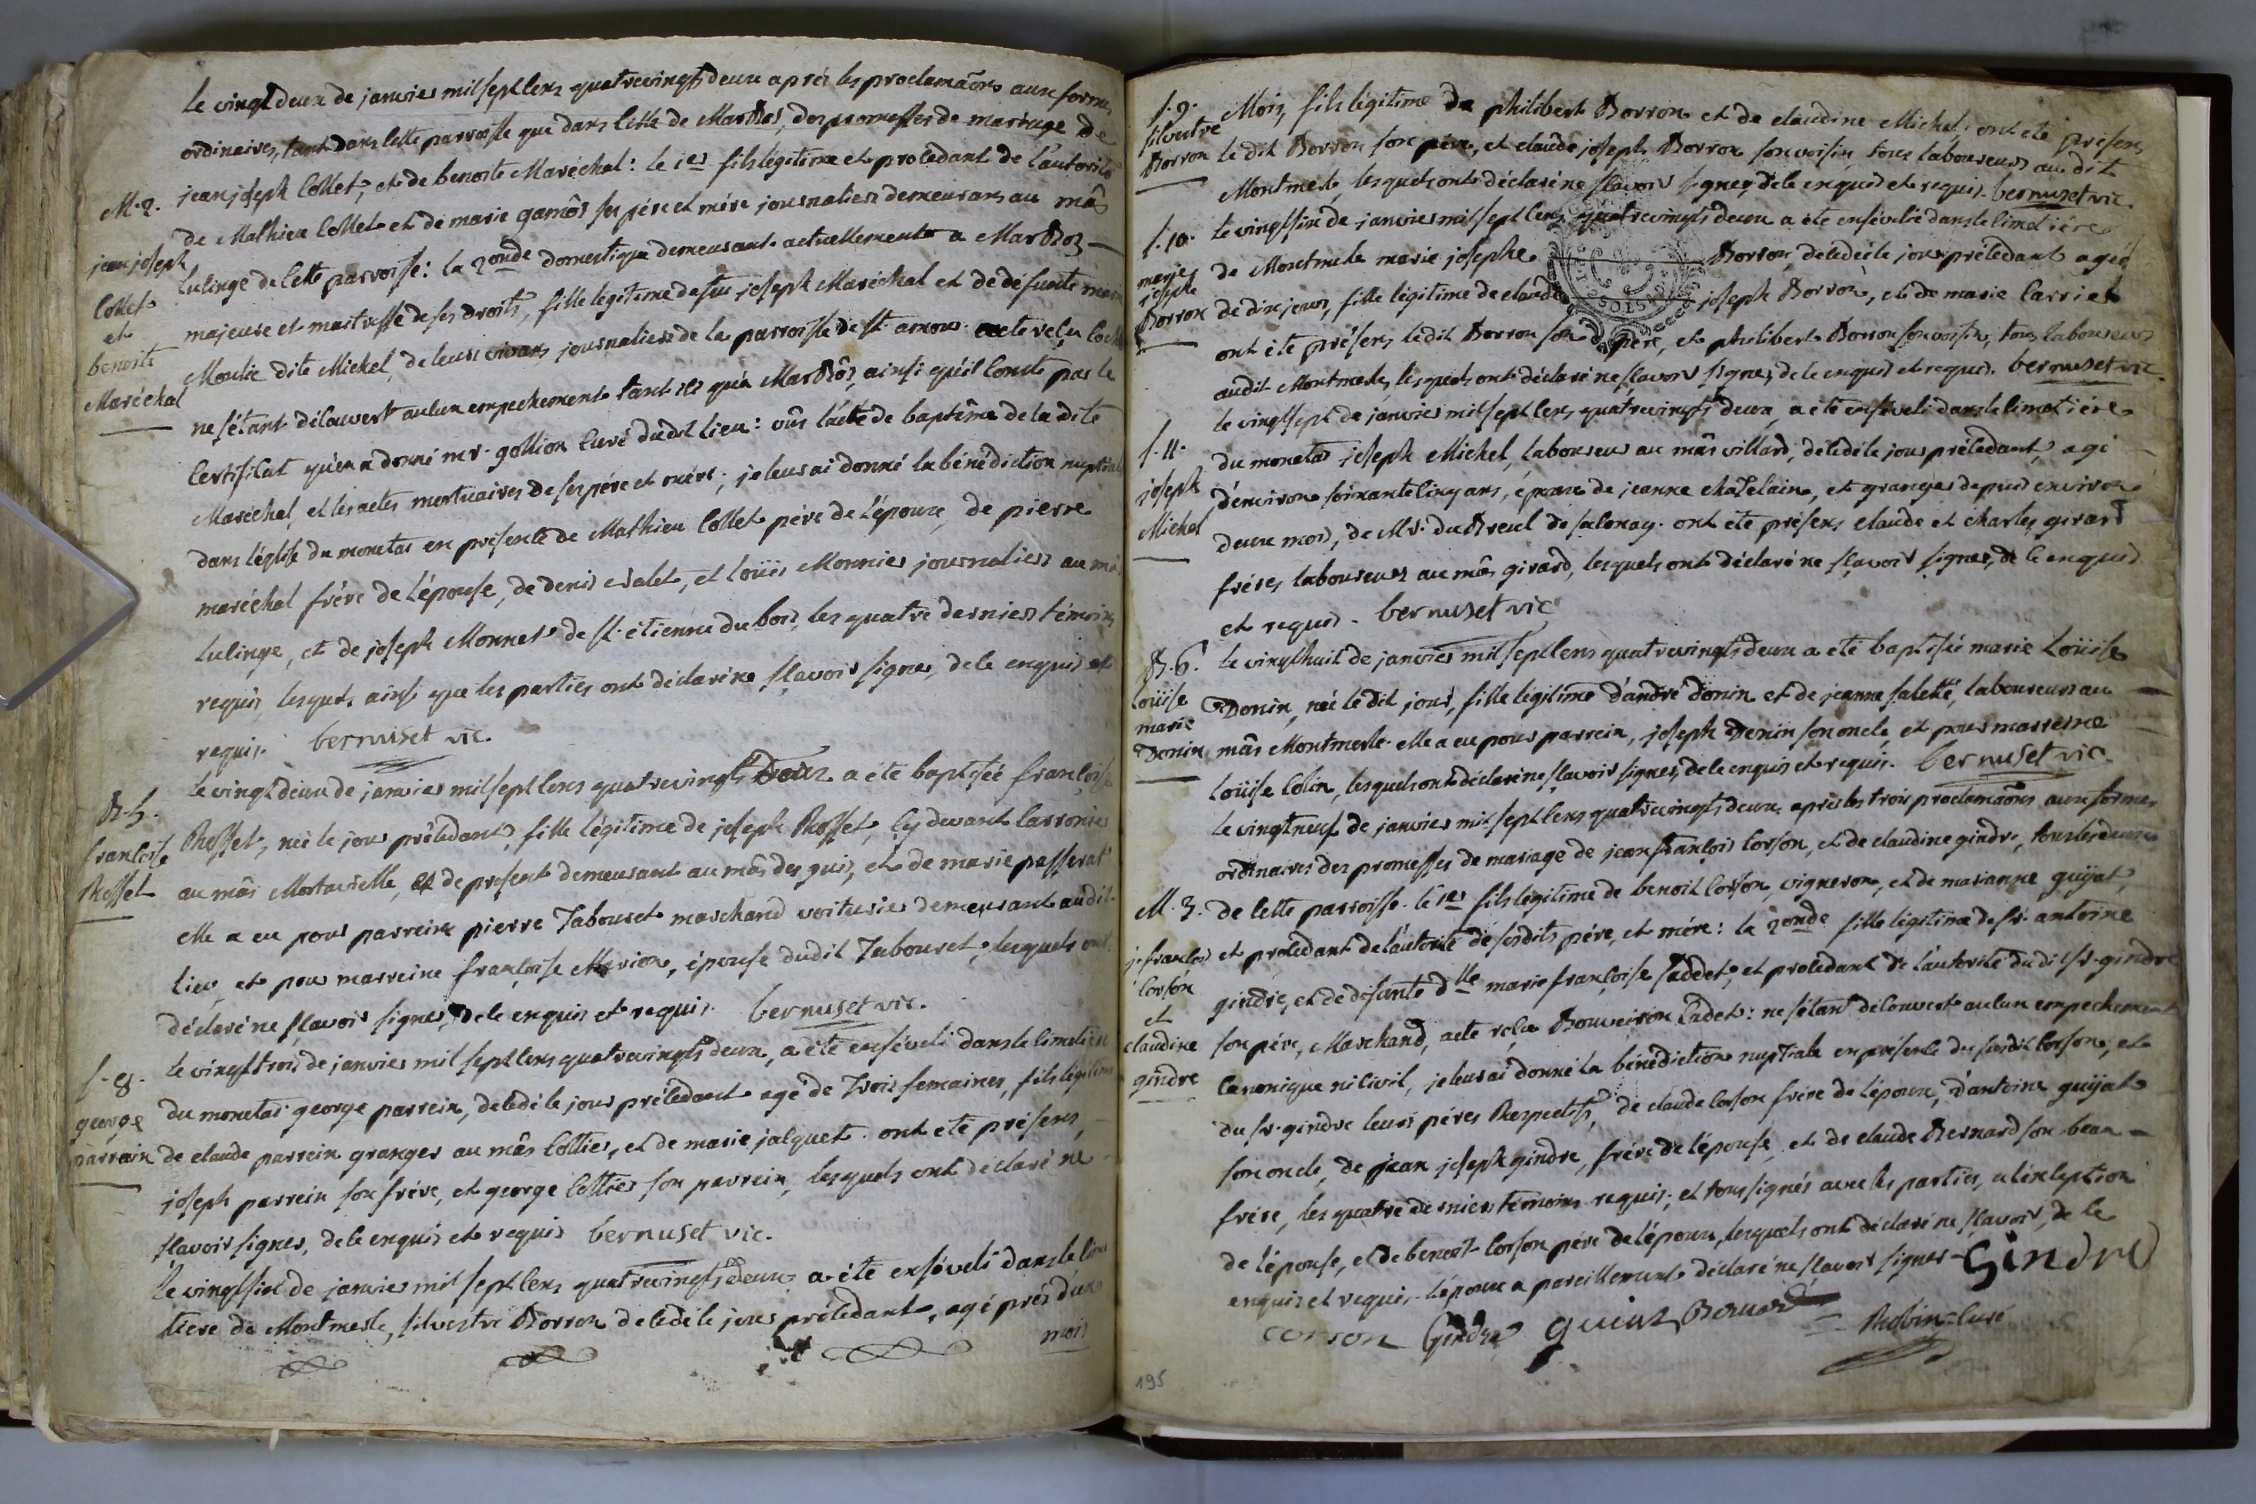 Le vingt deux de janvier mil sept cens quatrevingts deux après les proclamãons aux formes
ordinaires, tant dans cette parroisse que dans celle de Marboz, des promesses de mariage de
M. 2.
jean joseph
Collet
et
benoite
Maréchal
jean joseph Collet, et de benoite Maréchal: le 1er fils légitime et procédant de l'autorité
de Mathieu Collet et de marie gamôs ses père et mère journaliers demeurans au mâs
Culinge de cette parroisse: la 2onde domestique demeurant actuellement a Marboz
majeure et maitresse de ses droits, fille légitime de feu joseph Maréchal et de défunte marie
Moulie dite Michel, de leurs vivans journaliers de la parroisse de St. amour. acte reçu
ne s'étant découvert aucun empechement tant ici qu'a Marbôs, ainsi qu'il conste par le
Certificat qu'en a donné mr. gollion Curé dudit lieu: vûs l'acte de baptême de la dite
Maréchal, et les actes mortuaires de ses père et mère; je leur ai donné la bénédiction nuptiale
dans l'église du monetai en présence de Mathieu Collet père de l'époux, de pierre
maréchal frère de l'épouse, de denis valet, et loüis Monnier journaliers au mâs
Culinge, et de joseph Monnet de St. étienne du bois, les quatre derniers témoins
requis, lesquels ainsi que les parties ont déclaré ne sçavoir signer, de ce enquis et
requis. bernuset vic.
B. 5.
françoise
Rosset
Le vingt deux de janvier mil sept cens quatrevingts Deux a été baptisée françoise
Rosset, née le jour précédant, fille légitime de joseph Rosset, cy devant Carronier
au mâs Mortarelle, et de présent demeurant au mâs des guis, et de marie passerat
elle a eu pour parrein pierre Tabouret marchand voiturier demeurant audit
lieu, et pour marreine françoise Mirion, épouse dudit Tabouret, lesquels ont
déclaré ne sçavoir signer, de ce enquis et requis. bernuset vic.
S. 8.
george
parrein
Le vingt trois de janvier mil sept cens quatrevingts deux, a été enséveli dans le cimetière
du monetai george parrein, decédé le jour précédant agé de trois semaines, fils légitime
de claude parrein granger au mâs Cottier, et de marie jacquet. ont été présens,
joseph parrein son frère, et george Cottier son parrein, lesquels ont déclaré ne
sçavoir signer, de ce enquis et requis bernuset vic.
Le vingt six de janvier mil sept cens quatrevingts deux a été enséveli dans le cime
tiere de Montmerle, silvestre Borron decédé le jour précédant, agé près d'un
mois
S. 9.
silvestre
Borron
Mois, fils légitime de philibert Borron et de claudine Michel; ont été présens
le dit Borron son père, et claude joseph Borron son voisin tous laboureurs audit
Montmerle, lesquels ont déclaré ne sçavoir signer, de ce enquis et requis. bernuset vic.
S. 10.
marie
josephe
Borron
Le vingt six de janvier mil sept cens quatrevingts deux a été ensévelie dans le cimetière
de Montmerle marie josephe Borron, decédée le jour précédant agée
de dix jours, fille légitime de claude joseph Borron, et de marie Carriet
ont été présens ledit Borron son père, et philibert Borron son voisin, tous laboureurs
audit Montmerle, lesquels ont déclaré ne sçavoir signer, de ce enquis et requis. bernuset vic.
S. 11.
joseph
Michel
Le vingt sept de janvier mil sept cens quatrevingts deux, a été enséveli dans le cimetière
du monetai joseph Michel, laboureur au mâs villard, decédé le jour précédant, agé
d'environ soixante cinq ans, époux de jeanne chatelain, et granger depuis environ
deux mois, de Mr. du Breul de salonay. ont été présens claude et charles girard
frères laboureurs au mâs girard, lesquels ont déclaré ne sçavoir signer, de ce enquis
et requis. bernuset vic
B. 6.
Loüise
marie
Donin
Le vingt huit de janvier mil sept cens quatrevingts deux a été baptisée marie Loüise
Donin, née le dit jour, fille légitime d'andré donin et de jeanne falette, laboureurs au
mâs Montmerle. elle a eu pour parrein, joseph Donin son oncle, et pour marreine
Loüise Colin, lesquels ont déclaré ne sçavoir signer, de ce enquis et requis. bernuset vic.
Le vingt neuf de janvier mil sept cens quatrevingts deux, après les trois proclamãons aux formes
ordinaires des promesses de mariage de jean françois Corson, et de claudine gindre, tous les deux
M. 3.
j. françois
Corson
et
claudine
gindre
de cette parroisse. le 1er fils légitime de benoit Corson, vigneron, et de marianne guÿat,
et procédant de l'autorité de sesdits père, et mère: la 2onde fille légitime de Sr. antoine
gindre, et de défunte dlle marie françoise Saddet, et procédant de l'autorité dudit Sr. gindre
son père, Marchand, acte reçu Bouveiron Cadet: ne s'étant découvert aucun empechement
canonique ni civil, je leur ai donné la bénédiction nuptiale en présence du susdit Corson, et
du Sr. gindre leurs pères Respectifs, de claude Corson frère de l'époux, d'antoine guÿat
son oncle, de jean joseph gindre, frère de l'épouse, et de claude Bernard son beau-
frère, les quatre derniers témoins requis, et tous signés avec les parties, a l'exception
de l'épouse, et de benoit Corson père de l'époux, lesquels ont déclaré ne sçavoir, de ce
enquis et requis. l'époux a pareillement déclaré ne sçavoir signer. Gindre
corson Gindre guiat Bernard Robin Curé
195